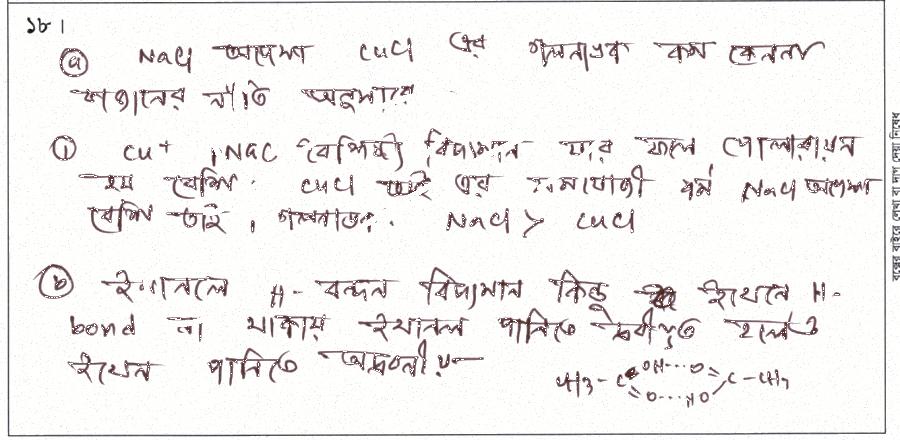 ১৮।
ⓐ NaCl অপেক্ষা CuCl এর গলনাঙ্ক কম কেননা
ফাজানের নীতি অনুসারে
ⓘ Cu+ বৈশিষ্ট্য বিদ্যমান যার ফলে পোলারায়ন
হয় বেশি। CuCl এর সমযোজী ধর্ম NaCl অপেক্ষা
বেশি তাই, গলনাঙ্ক. NaCl > CuCl
ⓑ ইথানলে H- বন্ধন বিদ্যমান কিন্তু ইথেনে H-
bond না থাকায় ইথানল পানিতে দ্রবীভূত হলেও
ইথেন পানিতে অদ্রবণীয়
CH3-C OH...O C-CH3
O...HO
বক্সের বাইরে লেখা বা দাগ দেয়া নিষেধ